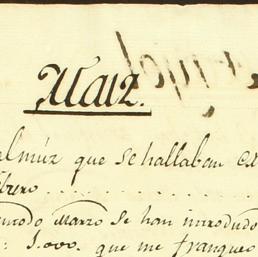 Maiz.
almúz que se hallaban ex
brero
modo Marzo se han introdudo
: 3.000. que me franqueo